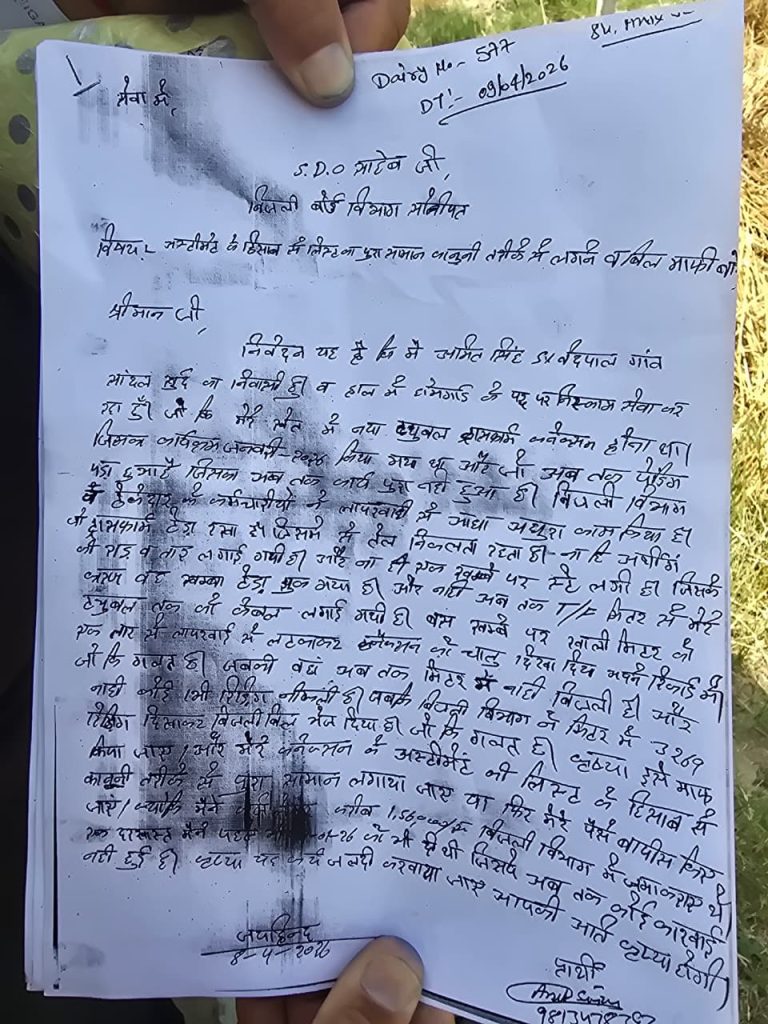 Dairy No - 577
DT:- 09/04/2026
सेवा में,
S.D.O साहेब जी,
बिजली बोर्ड विभाग सोनीपत
विषय:- अस्टीमेंट के हिसाब से लिस्ट का पुरा सामान कानुनी तरीके से लगाने व बिल माफी बारे
श्रीमान जी,
निवेदन यह है कि मैं अमित सिंह S/o वेदपाल गांव
खुर्द का निवासी हुँ व हाल में होमगार्ड के पद पर निस्काम सेवा कर
रहा हुँ। जो कि मेरे खेत में नया ट्युबल ट्रांसफार्म कनेक्सन होना था।
जिसका कार्यक्रम जनवरी-2026 किया गया था और जो अब तक पेंडिंग
पड़ा हुआ है जिसका अब तक कार्य पुरा नही हुआ है। बिजली विभाग
के ठेकेदार के कर्मचारीयों ने लापरवाही से आधा अधुरा काम किया है।
जो ट्रांसफार्म टेडा रखा है जिसमे से तेल निकलता रहता है। ना ही अर्थींग
की राड़ व तार लगाई गयी है। और ना ही एक खम्बे पर स्टे लगी है। जिसके
कारण वह खम्बा टेड़ा झुक गया है। और नाही अब तक T/F मिटर से मेरे
ट्युबल तक की केबल लगाई गयी है। बस खम्बे पर खाली मिटर को
एक तार से लापरवाई से लटकाकर कनेक्सन को चालु दिखा दिया अपने रिकार्ड में।
जो कि गलत है। जबकी वहां अब तक मिटर में नाही बिजली है और
नाही कोई भी रिडिंग नीकली है। जबकि बिजली विभाग ने मिटर में 3269
रिडिंग दिखाकर बिजली बिल भेज दिया है। जो कि गलत है। कृप्या इसे माफ
किया जाए। और मेरे कनेक्सन के अस्टीमेंट की लिस्ट के हिसाब से
कानुनी तरीके से पुरा सामान लगाया जाए या फिर मेरे पैसे वापीस किए
जाए। क्योंकि मैंने करीब 1,56000/₹ बिजली विभाग में जमा कराए थे।
एक दरखास्त मैंने पहले -26 को भी दी थी जिसपे अब तक कोई कारवाई
नही हुई है। कृप्या यह कार्य जल्दी करवाया जाए आपकी अति कृप्या होगी।
जयहिन्द
8-4-2026
प्रार्थी